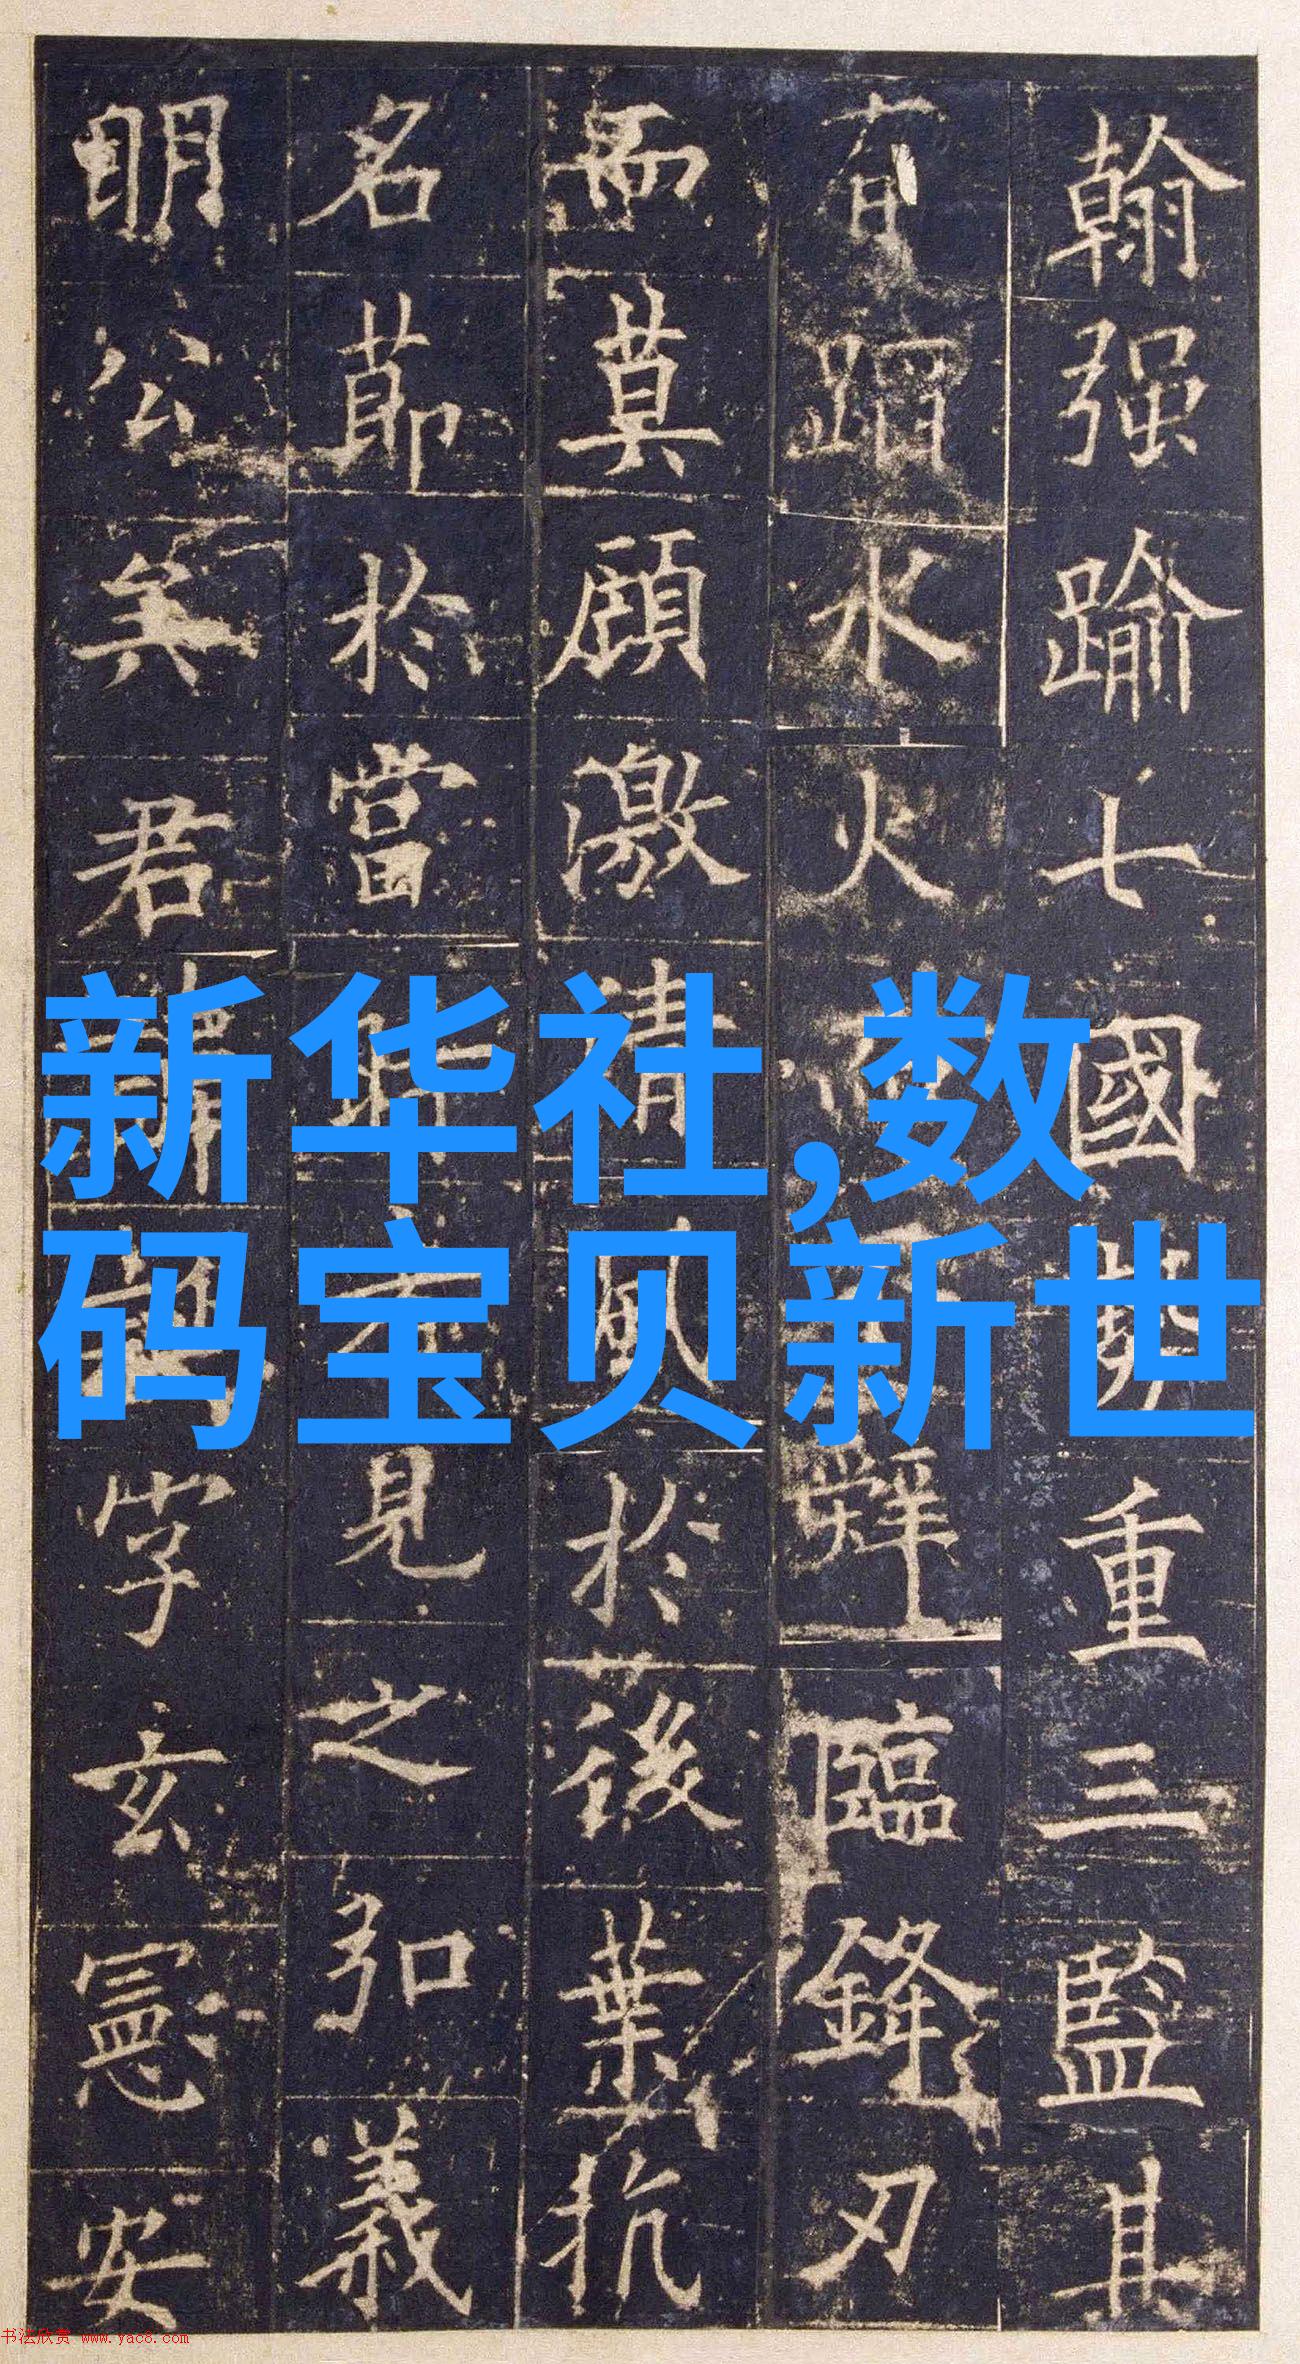 翰强踰七國勢重三監其
有蹈水火辭臨鋒刃
而莫顧激清風於後葉抗
名節於當時見之弘義
明公矣君諱字玄憲安
新华社,数
码宝贝新世
书法欣赏 www.yac8.com